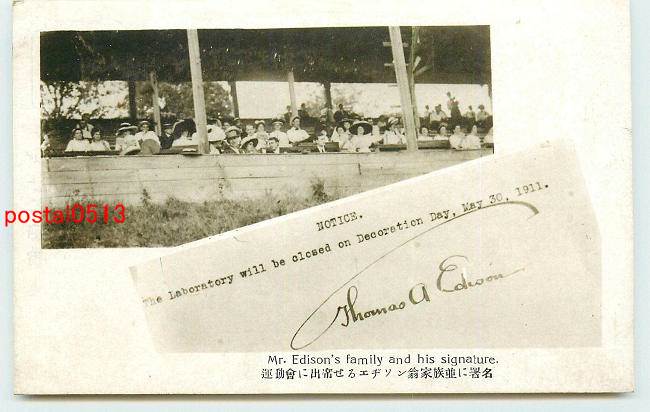 postal0513
NOTICE.
The Laboratory will be closed on Decoration Day, May 30, 1911.
Thomas A Edison
Mr. Edison's family and his signature.
運動會に出席せるエヂソン翁家族並に署名